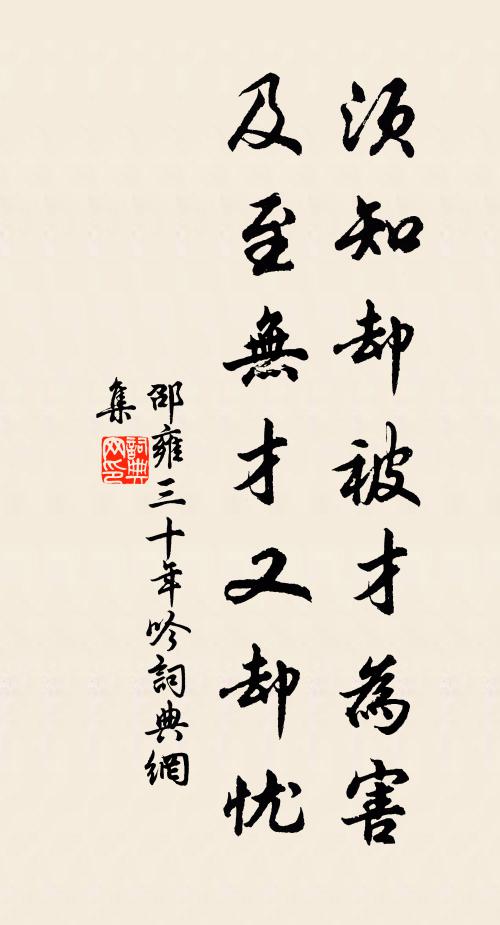 須知却被才為害
及至無才又却忧
邵雍三十年吟詞典網
集
詞典
网印